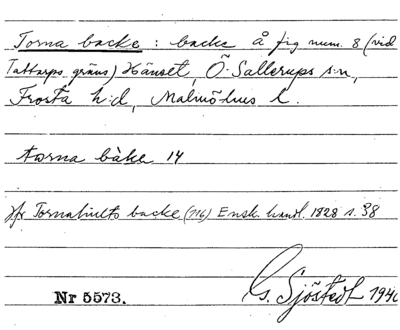 Torna backe : backe å fig num. 8 (vid
Tattarps gräns) Hänset, Ö. Sallerups s:n,
Frosta h:d, Malmöhus l.
tɷrna bàke 14
Jfr Tornahults backe (716) Ensk. handl. 1828 s. 38
Nr 5573.
G. Sjöstedt 1940